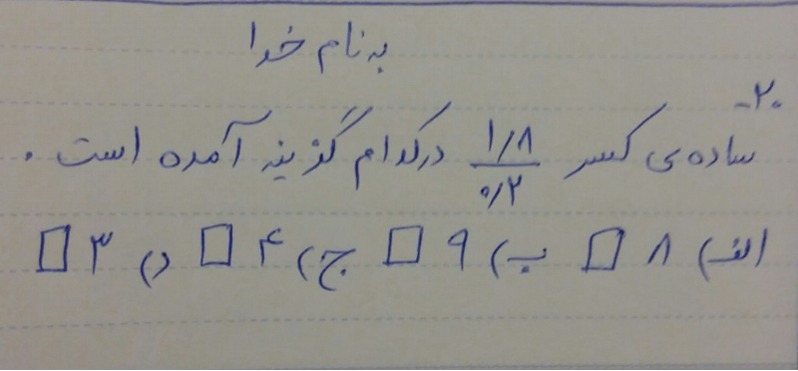 به نام خدا
۲۰-
ساده‌ی کسر ۱/۸ / ۰/۲ در کدام گزینه آمده است.
الف) ۸ □ ب) ۹ □ ج) ۴ □ د) ۳ □